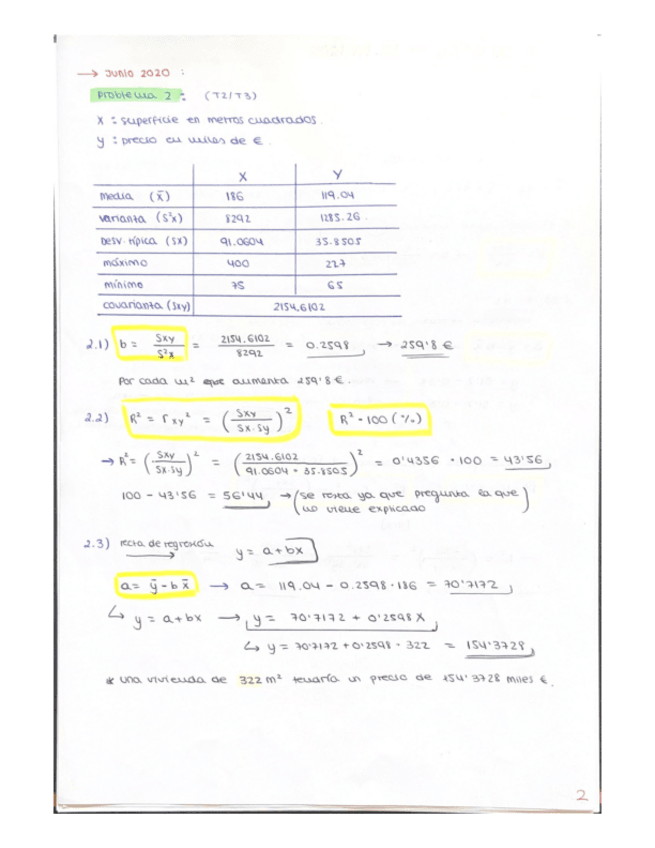 → Junio 2020 :
Problema 2 : (T2/T3)
X : superficie en metros cuadrados.
y : precio en miles de €.
X Y
media (x̄) 186 119.04
varianza (S²x) 8292 1285.26.
Desv. típica (Sx) 91.0604 35.8505
máximo 400 227
mínimo 75 65
covarianza (Sxy) 2154.6102
2.1) b = Sxy / S²x = 2154.6102 / 8292 = 0.2598 → 259'8 €
Por cada m² que aumenta 259'8 €.
2.2) R² = rxy² = (Sxy / Sx·Sy)² R² · 100 (%)
→ R² = (Sxy / Sx·Sy)² = (2154.6102 / 91.0604 · 35.8505)² = 0'4356 · 100 = 43'56
100 - 43'56 = 56'44 → (se resta ya que pregunta la que
no viene explicado)
2.3) recta de regresión y = a + bx
a = ȳ - b x̄ → a = 119.04 - 0.2598 · 186 = 70'7172
↳ y = a + bx → y = 70'7172 + 0'2598 X
↳ y = 70'7172 + 0'2598 · 322 = 154'3728
* una vivienda de 322 m² tendría un precio de 154'3728 miles €.
2